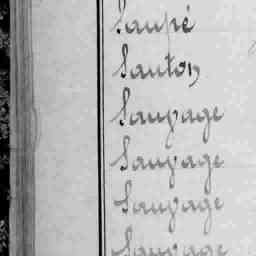 Saupé
Sauton
Sauvage
Sauvage
Sauvage
Sauvage